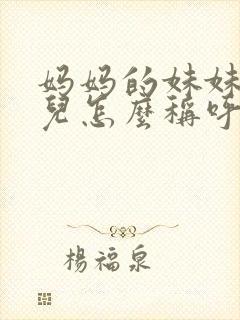 妈妈的妹妹
兒怎麼稱呼
楊福泉